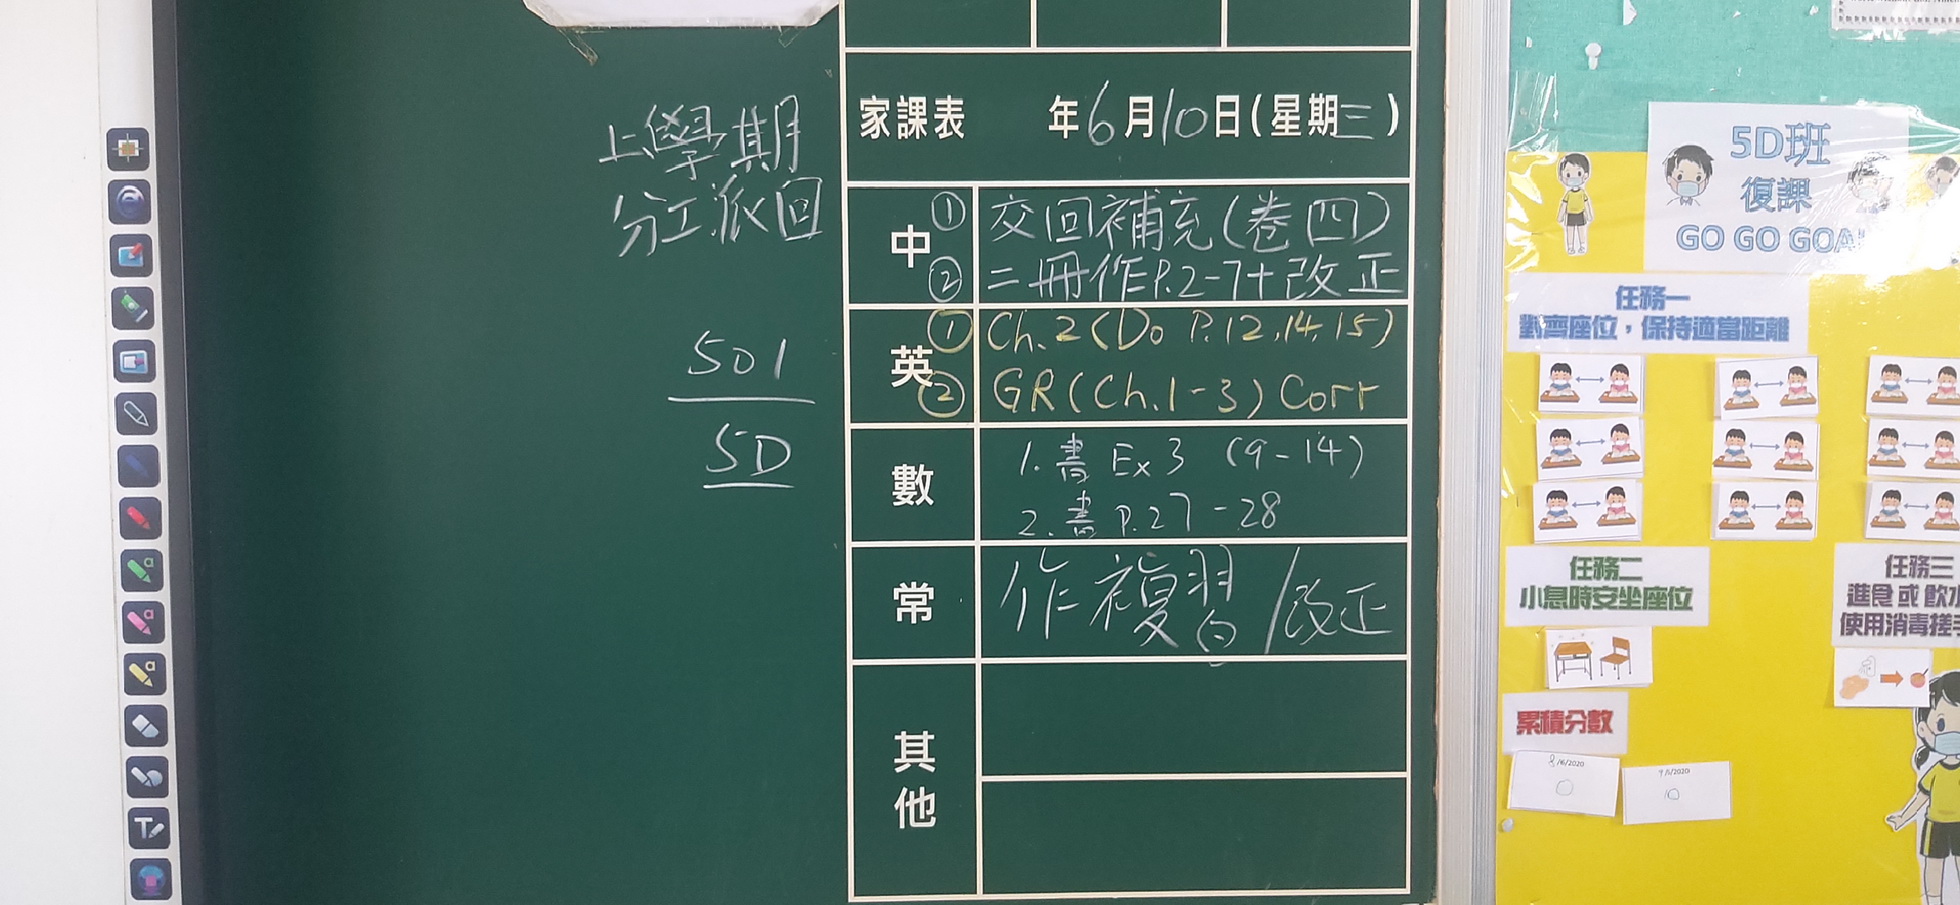 上學期
分工派回
501
5D
家課表 年6月10日(星期三)
中
① 交回補充(卷四)
② 二冊作P.2-7+改正
英
① Ch.2(Do P.12,14,15)
② GR(Ch.1-3)Corr
數
1.書 Ex 3 (9-14)
2.書 P.27-28
常
作複習/改正
其他
5D班
復課
GO GO GOAL
任務一
對齊座位，保持適當距離
任務二
小息時安坐座位
任務三
進食或飲水
使用消毒搓手
累積分數
8/6/2020
0
9/6/2020
10